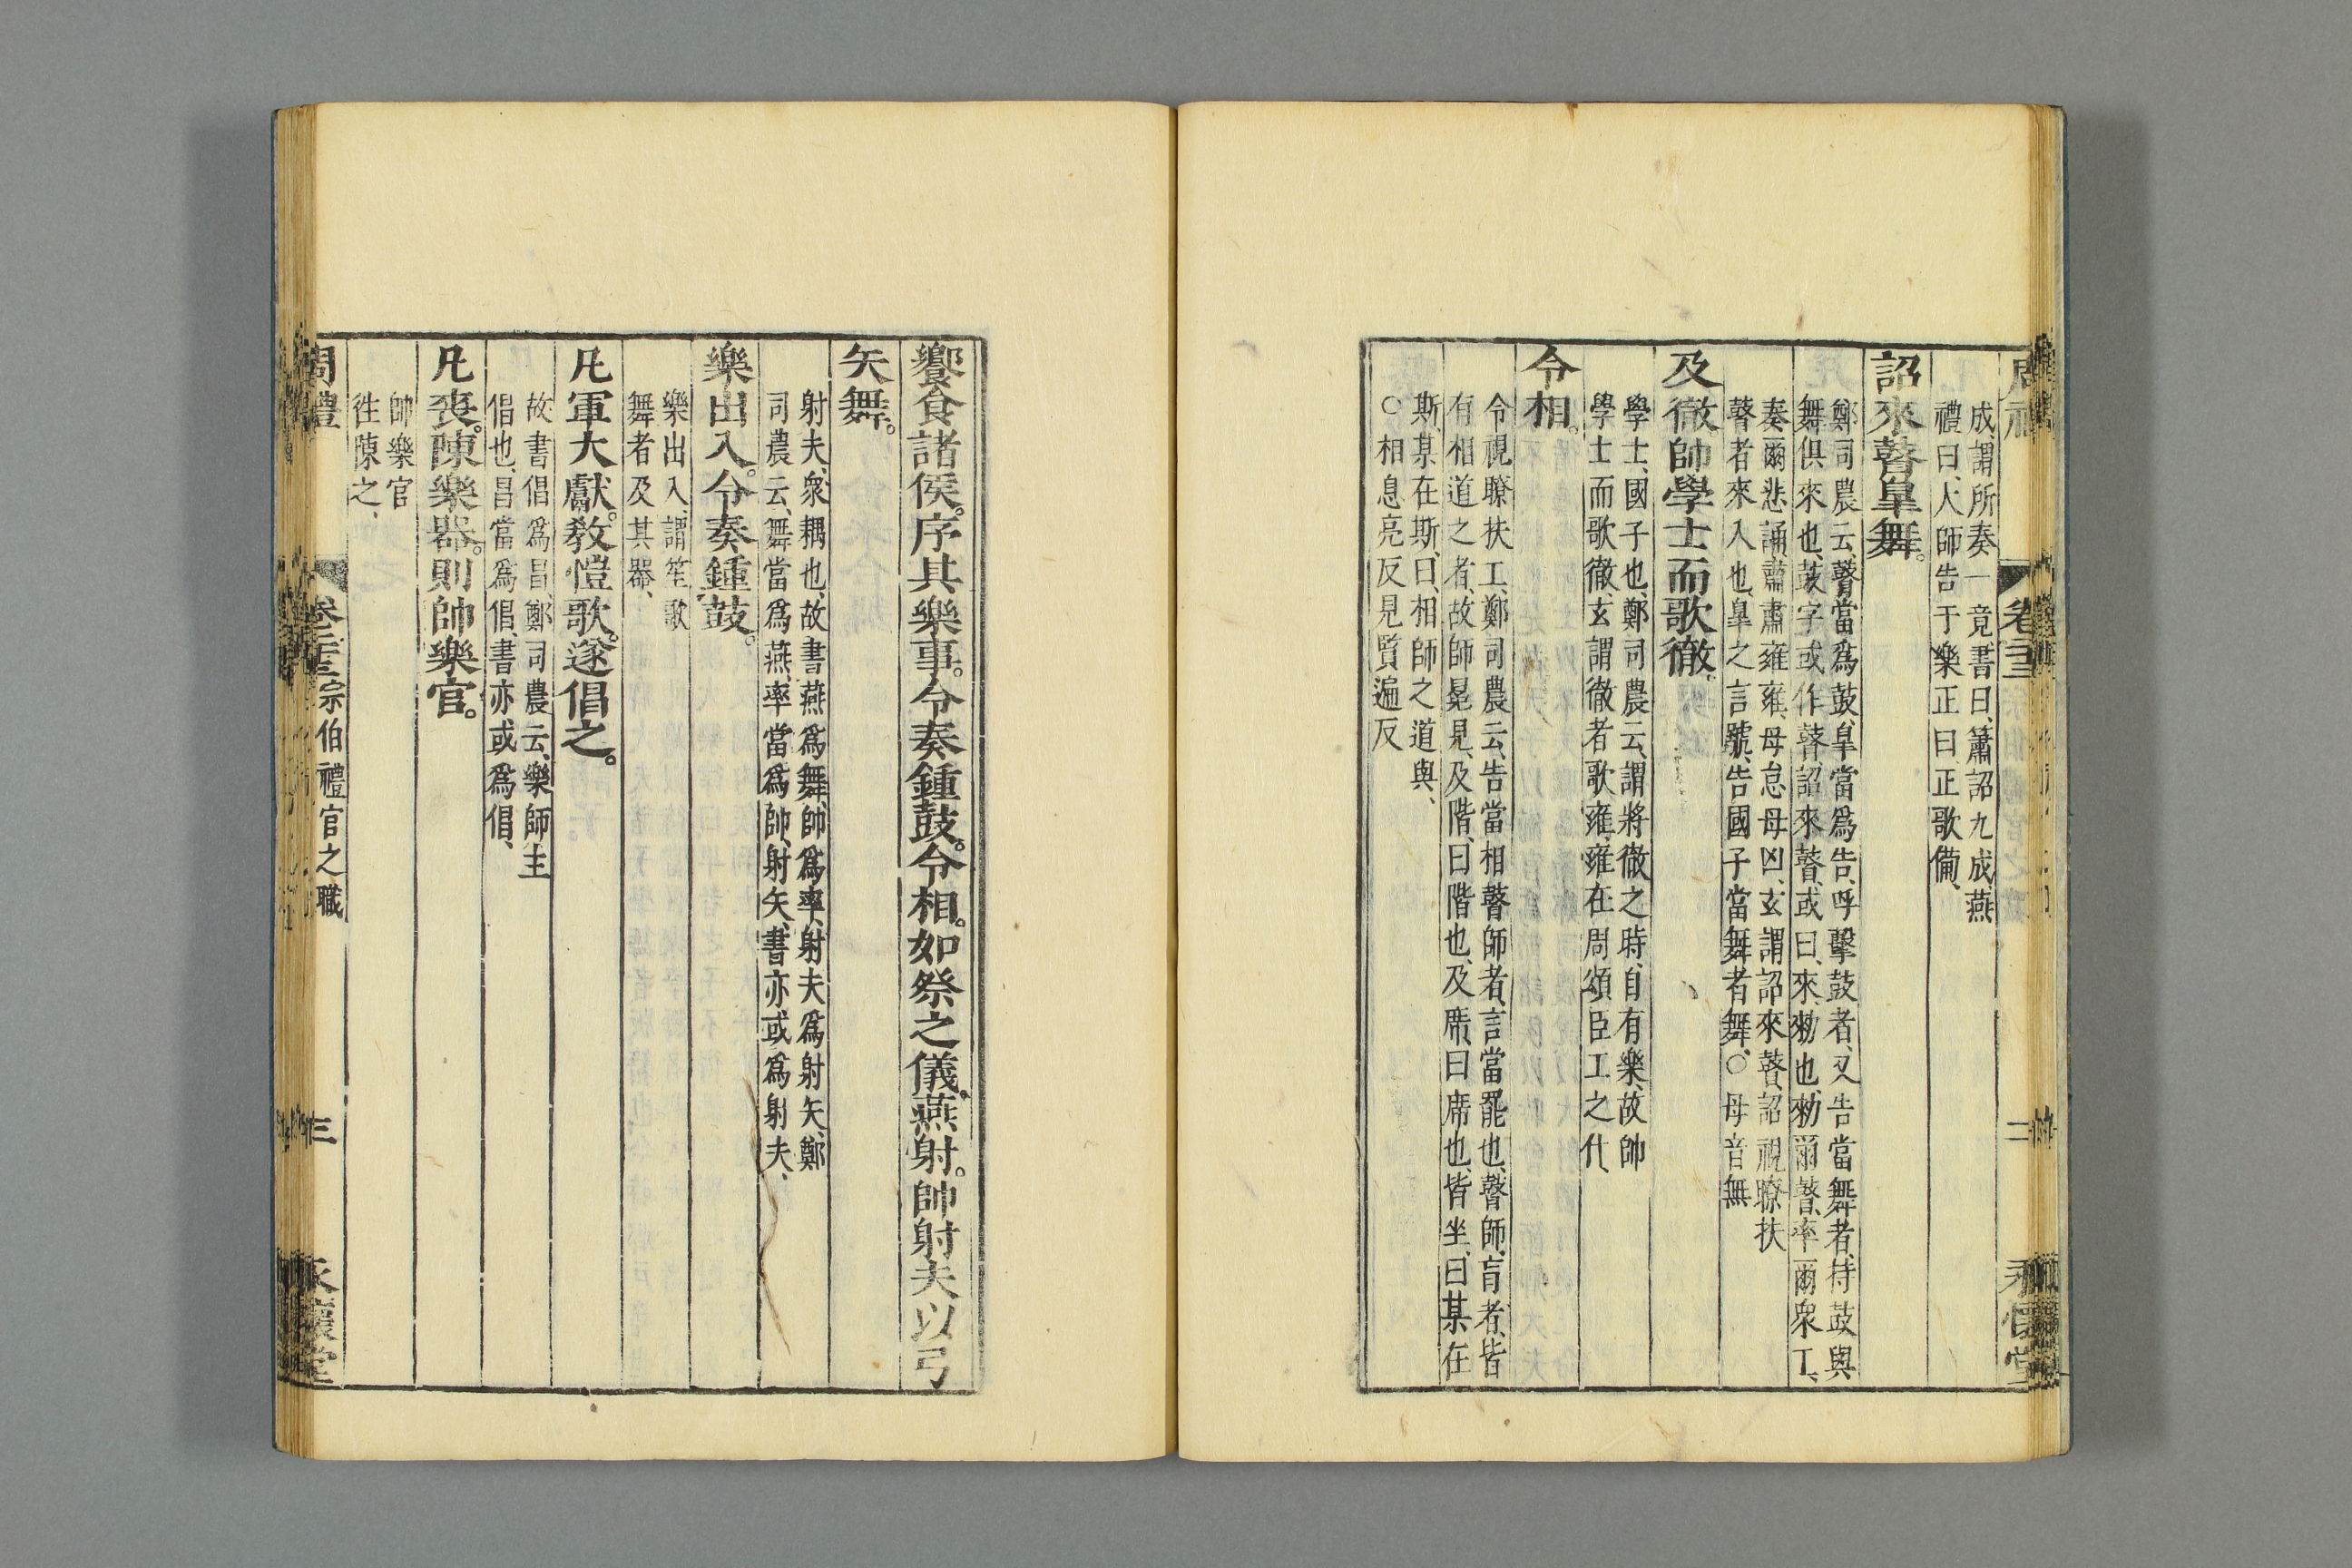 成、謂所奏一竟、書曰、簫詔九成、燕
禮曰、大師告于樂正曰、正歌備、
詔來瞽臯舞。
鄭司農云、瞽當爲鼓、臯當爲告、呼擊鼓者、又告當舞者、持鼓與
舞俱來也、鼓字或作瞽、詔來瞽、或曰、來、勑也、勑爾瞽、率爾衆工、
奏爾悲誦、肅肅雍雍、毋怠毋凶、玄謂詔來瞽、詔視瞭扶
瞽者來入也、臯之言號、告國子當舞者舞、○毋音無
及徹、帥學士而歌徹、
學士、國子也、鄭司農云、謂將徹之時、自有樂、故帥
學士而歌徹、玄謂徹者歌雍、雍在周頌臣工之什、
令相。
令視瞭扶工、鄭司農云、告當相瞽師者、言當罷也、瞽師、盲者、皆
有相道之者、故師冕見、及階、曰階也、及席、曰席也、皆坐、曰某在
斯、某在斯、曰、相師之道與、
○相息亮反見賢遍反
周禮
卷二十三
二
永懷堂
饗食諸侯。序其樂事。令奏鍾鼓。令相。如祭之儀。燕射。帥射夫以弓
矢舞。
射夫、衆耦也、故書燕爲舞、帥爲率、射夫爲射矢、鄭
司農云、舞當爲燕、率當爲帥、射矢、書亦或爲射夫、
樂出入。令奏鍾鼓。
樂出入、謂笙歌
舞者及其器、
凡軍大獻。教愷歌。遂倡之。
故書倡爲昌、鄭司農云、樂師主
倡也、昌當爲倡、書亦或爲倡、
凡喪。陳樂器。則帥樂官。
帥樂官
往陳之、
周禮
卷二十三宗伯禮官之職
三
永懷堂